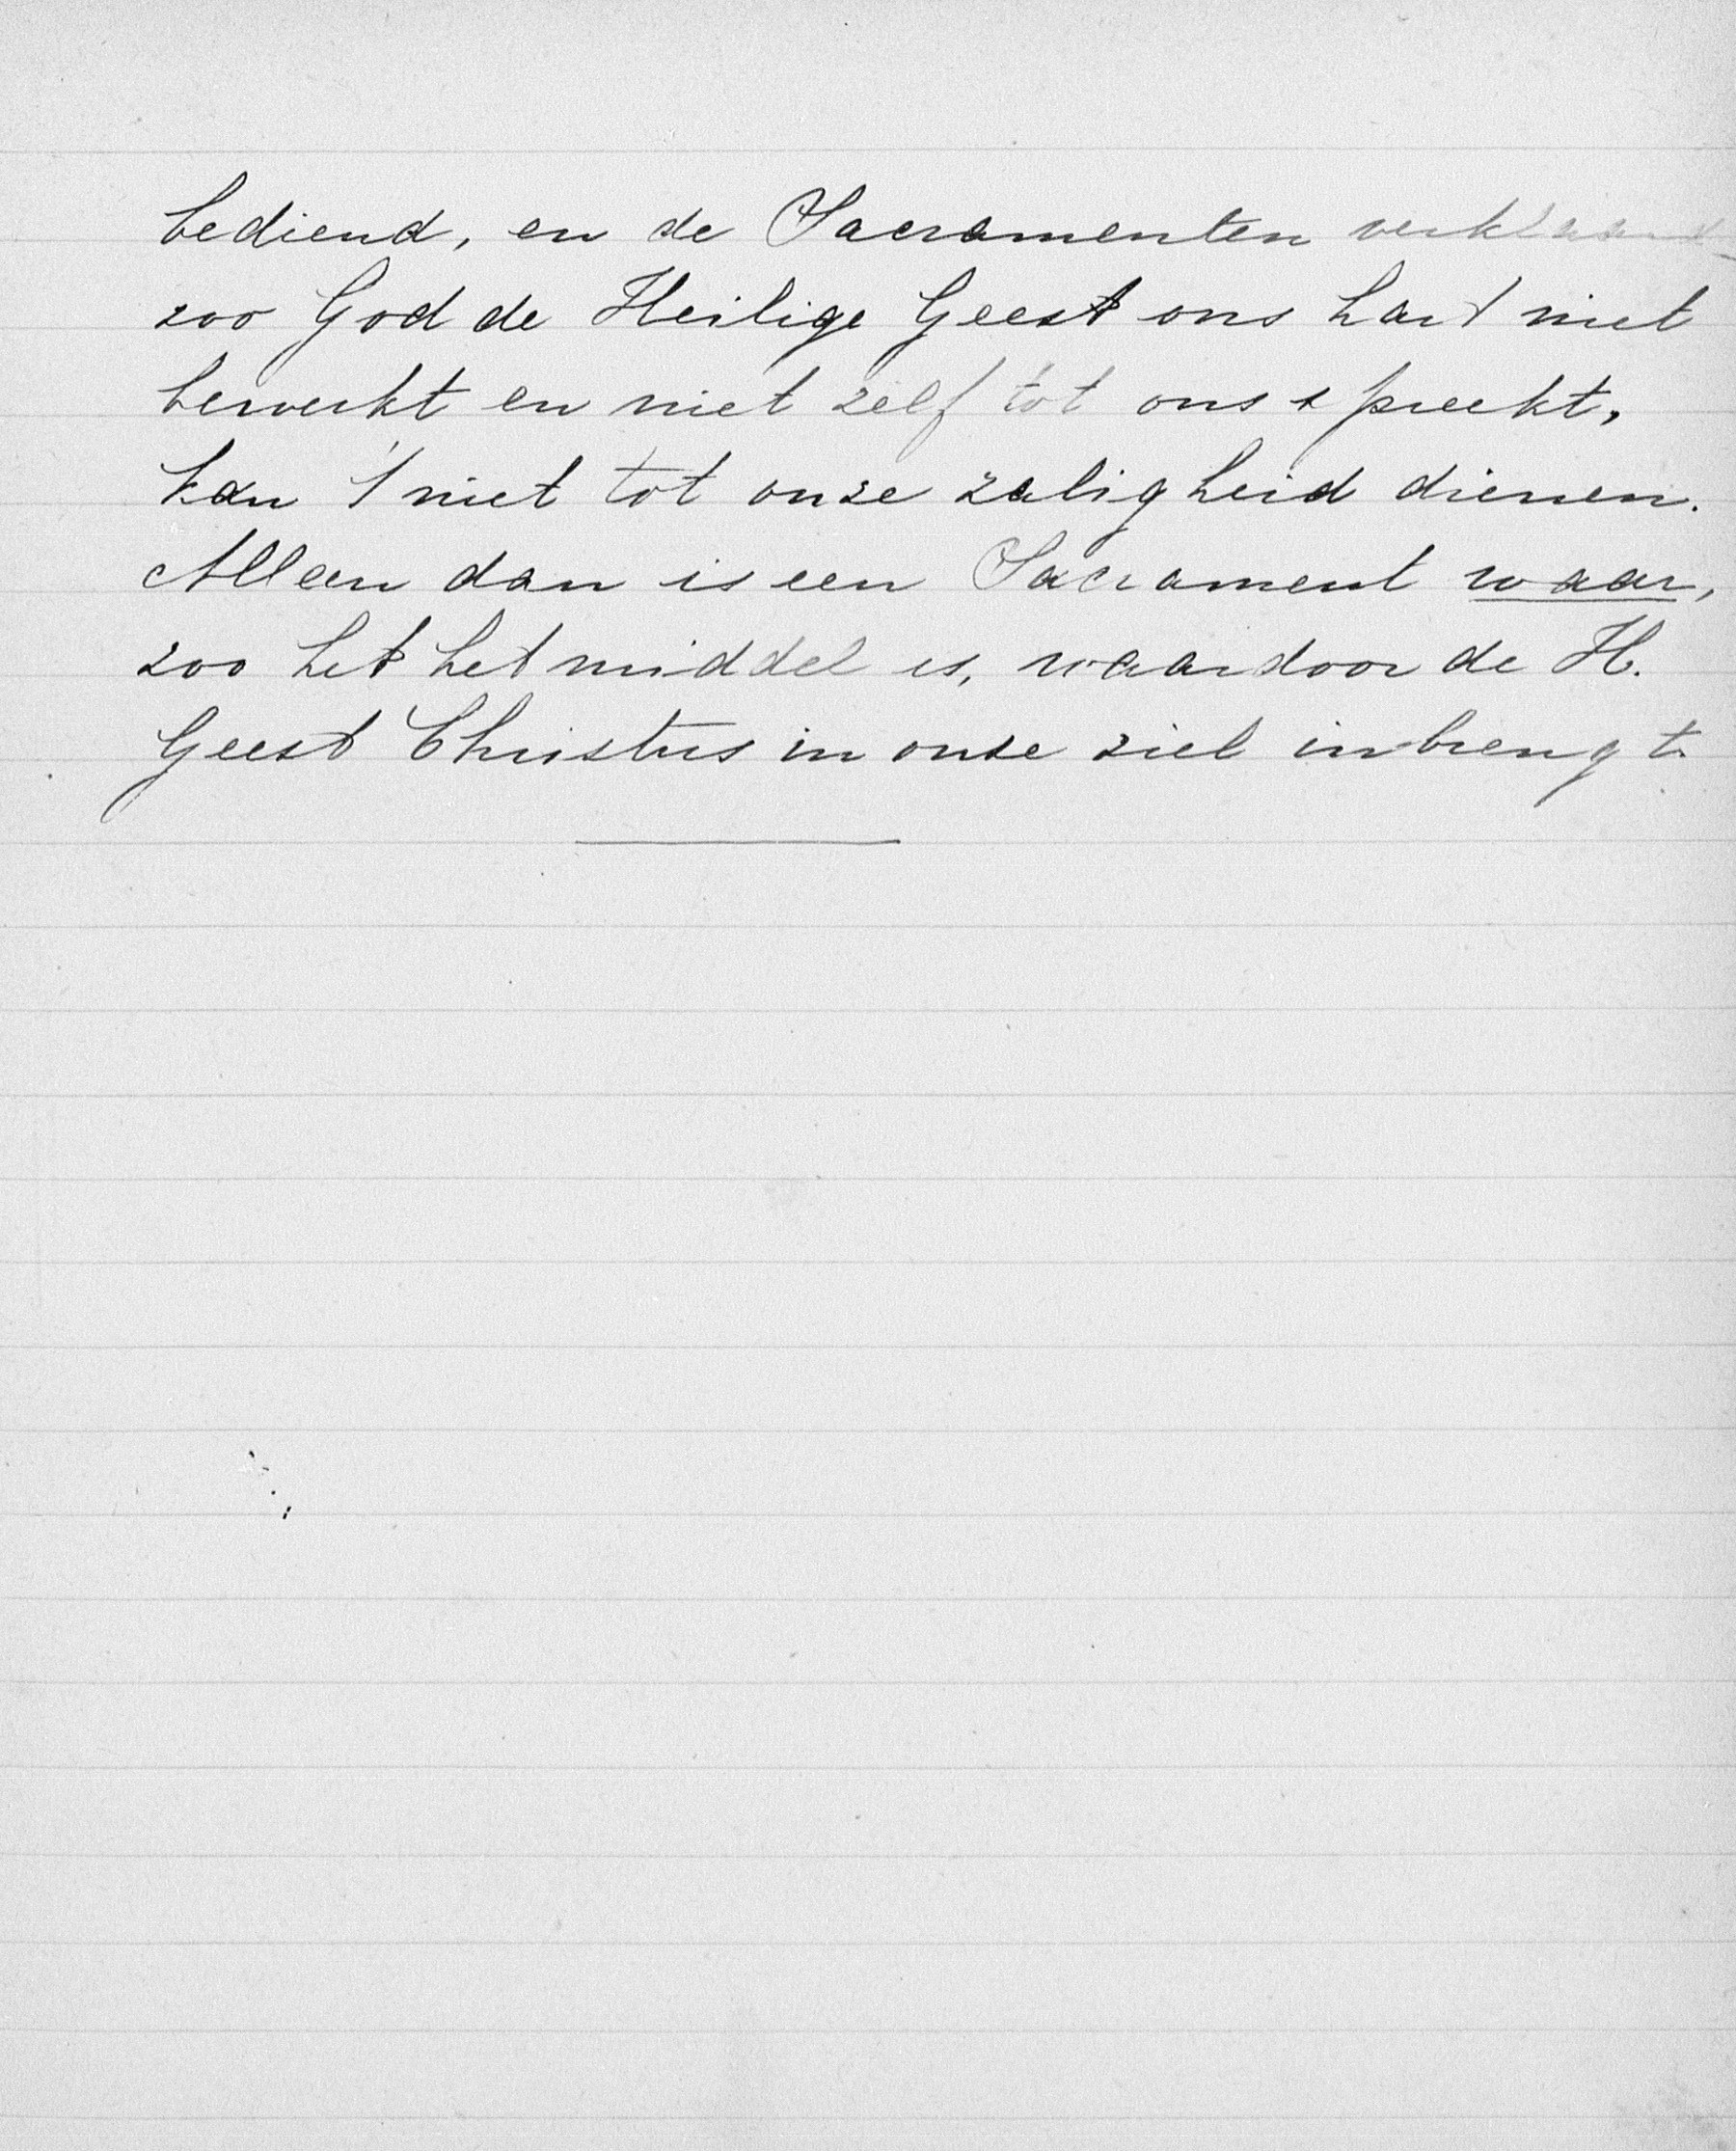 bediend, en de Sacramenten verklaard
zoo God de Heilige Geest ons hart niet
bewerkt en niet zelf tot ons spreekt,
kan 't niet tot onze zaligheid dienen.
Alleen dan is een Sacrament waar,
zoo het het middel is, waardoor de H.
Geest Christus in onze ziel inbrengt.